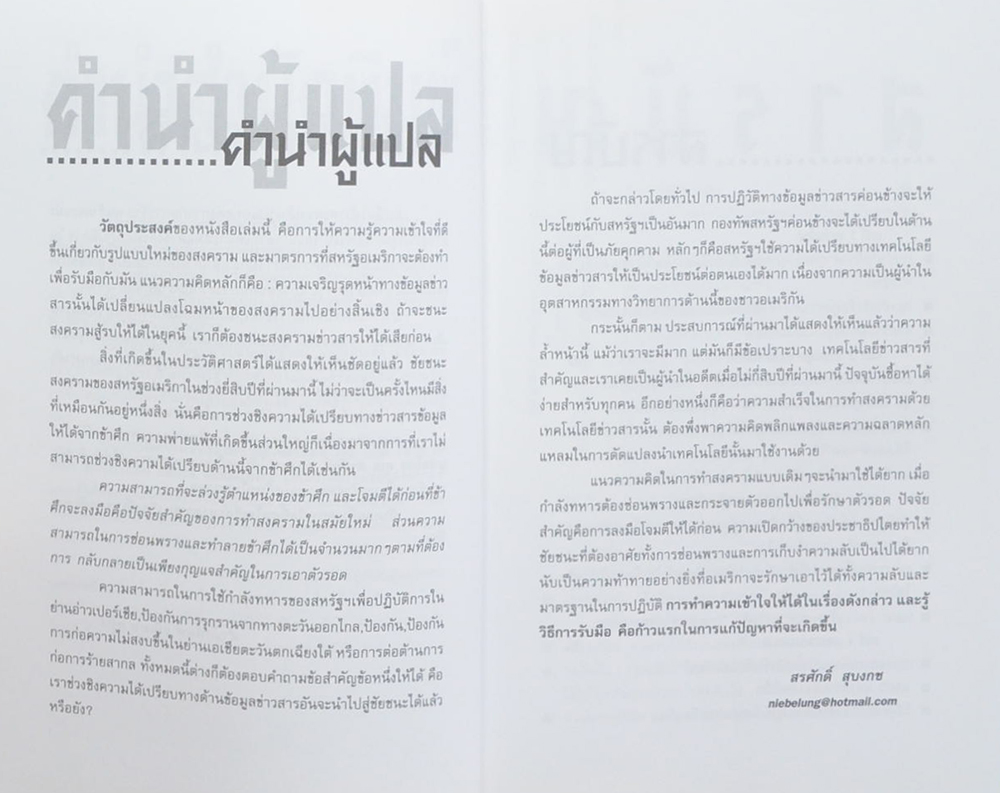 คำนำผู้แปล
คำนำผู้แปล
วัตถุประสงค์ของหนังสือเล่มนี้ คือการให้ความรู้ความเข้าใจที่ดี
ขึ้นเกี่ยวกับรูปแบบใหม่ของสงคราม และมาตรการที่สหรัฐอเมริกาจะต้องทำ
เพื่อรับมือกับมัน แนวความคิดหลักก็คือ : ความเจริญรุดหน้าทางข้อมูลข่าว
สารนั้นได้เปลี่ยนแปลงโฉมหน้าของสงครามไปอย่างสิ้นเชิง ถ้าจะชนะ
สงครามสู้รบให้ได้ในยุคนี้ เราก็ต้องชนะสงครามข่าวสารให้ได้เสียก่อน
สิ่งที่เกิดขึ้นในประวัติศาสตร์ได้แสดงให้เห็นชัดอยู่แล้ว ชัยชนะ
สงครามของสหรัฐอเมริกาในช่วงยี่สิบปีที่ผ่านมานี้ ไม่ว่าจะเป็นครั้งไหนมีสิ่ง
ที่เหมือนกันอยู่หนึ่งสิ่ง นั่นคือการช่วงชิงความได้เปรียบทางข่าวสารข้อมูล
ให้ได้จากข้าศึก ความพ่ายแพ้ที่เกิดขึ้นส่วนใหญ่ก็เนื่องมาจากการที่เราไม่
สามารถช่วงชิงความได้เปรียบด้านนี้จากข้าศึกได้เช่นกัน
ความสามารถที่จะล่วงรู้ตำแหน่งของข้าศึก และโจมตีได้ก่อนที่ข้า
ศึกจะลงมือคือปัจจัยสำคัญของการทำสงครามในสมัยใหม่ ส่วนความ
สามารถในการซ่อนพรางและทำลายข้าศึกได้เป็นจำนวนมากๆตามที่ต้อง
การ กลับกลายเป็นเพียงกุญแจสำคัญในการเอาตัวรอด
ความสามารถในการใช้กำลังทหารของสหรัฐฯเพื่อปฏิบัติการใน
ย่านอ่าวเปอร์เซีย,ป้องกันการรุกรานจากทางตะวันออกไกล,ป้องกัน,ป้องกัน
การก่อความไม่สงบขึ้นในย่านเอเชียตะวันตกเฉียงใต้ หรือการต่อต้านการ
ก่อการร้ายสากล ทั้งหมดนี้ต่างก็ต้องตอบคำถามข้อสำคัญข้อหนึ่งให้ได้ คือ
เราช่วงชิงความได้เปรียบทางด้านข้อมูลข่าวสารอันจะนำไปสู่ชัยชนะได้แล้ว
หรือยัง?
ถ้าจะกล่าวโดยทั่วไป การปฏิวัติทางข้อมูลข่าวสารค่อนข้างจะให้
ประโยชน์กับสหรัฐฯเป็นอันมาก กองทัพสหรัฐฯค่อนข้างจะได้เปรียบในด้าน
นี้ต่อผู้ที่เป็นภัยคุกคาม หลักๆก็คือสหรัฐฯใช้ความได้เปรียบทางเทคโนโลยี
ข้อมูลข่าวสารให้เป็นประโยชน์ต่อตนเองได้มาก เนื่องจากความเป็นผู้นำใน
อุตสาหกรรมทางวิทยาการด้านนี้ของชาวอเมริกัน
กระนั้นก็ตาม ประสบการณ์ที่ผ่านมาได้แสดงให้เห็นแล้วว่าความ
ล้ำหน้านี้ แม้ว่าเราจะมีมาก แต่มันก็มีข้อเปราะบาง เทคโนโลยีข่าวสารที่
สำคัญและเราเคยเป็นผู้นำในอดีตเมื่อไม่กี่สิบปีที่ผ่านมานี้ ปัจจุบันซื้อหาได้
ง่ายสำหรับทุกคน อีกอย่างหนึ่งก็คือว่าความสำเร็จในการทำสงครามด้วย
เทคโนโลยีข่าวสารนั้น ต้องพึ่งพาความคิดพลิกแพลงและความฉลาดหลัก
แหลมในการดัดแปลงนำเทคโนโลยีนั้นมาใช้งานด้วย
แนวความคิดในการทำสงครามแบบเดิมๆจะนำมาใช้ได้ยาก เมื่อ
กำลังทหารต้องซ่อนพรางและกระจายตัวออกไปเพื่อรักษาตัวรอด ปัจจัย
สำคัญคือการลงมือโจมตีให้ได้ก่อน ความเปิดกว้างของประชาธิปไตยทำให้
ชัยชนะที่ต้องอาศัยทั้งการซ่อนพรางและการเก็บงำความลับเป็นไปได้ยาก
นับเป็นความท้าทายอย่างยิ่งที่อเมริกาจะรักษาเอาไว้ได้ทั้งความลับและ
มาตรฐานในการปฏิบัติ การทำความเข้าใจให้ได้ในเรื่องดังกล่าว และรู้
วิธีการรับมือ คือก้าวแรกในการแก้ปัญหาที่จะเกิดขึ้น
สรศักดิ์ สุบงกช
niebelung@hotmail.com